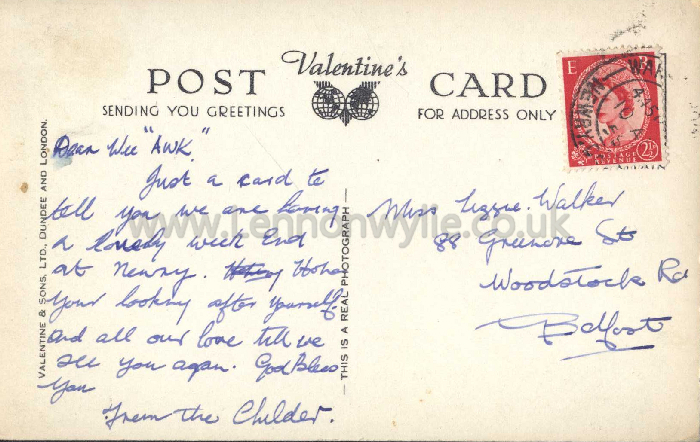 POST Valentine's CARD
SENDING YOU GREETINGS
FOR ADDRESS ONLY
VALENTINE & SONS, LTD., DUNDEE AND LONDON.
THIS IS A REAL PHOTOGRAPH
E
POSTAGE
REVENUE
2½
NEWRY
Dear Wee "AWK"
Just a card to
tell you we are having
a lovely week End
at Newry. Hope
Your looking after yourself.
and all our love till we
see you again. God Bless
You
From the Childer.
Miss Lizzie Walker
88 Greenore St
Woodstock Rd
Belfast
www.LennonWylie.co.uk